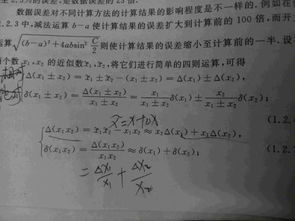 数据误差对不同计算方法的计算结果的影响程度是不一样的. 例如在
1.2.3 中, 减法运算 b−a 使计算结果的误差扩大到计算前的 100 倍, 而开
运算 √((b−a)²+4ab sin² C/2) 则使计算结果的误差缩小至计算前的一半. 设
两个数 x₁, x₂ 的近似数 x₁, x₂, 将它们进行简单的四则运算, 可得
Δ(x₁±x₂) = x₁±x₂−(x₁±x₂) = Δ(x₁)±Δ(x₂),
δ(x₁±x₂) = Δ(x₁±x₂)/(x₁±x₂) = x₁/(x₁±x₂) δ(x₁) ± x₂/(x₁±x₂) δ(x₂);
(1.2.
Δ(x₁x₂) = x₁x₂−x₁x₂ ≈ x₂Δ(x₁)+x₁Δ(x₂),
δ(x₁x₂) = Δ(x₁x₂)/(x₁x₂) ≈ δ(x₁)+δ(x₂); (1.2.
= Δx₁/x₁ + Δx₂/x₂